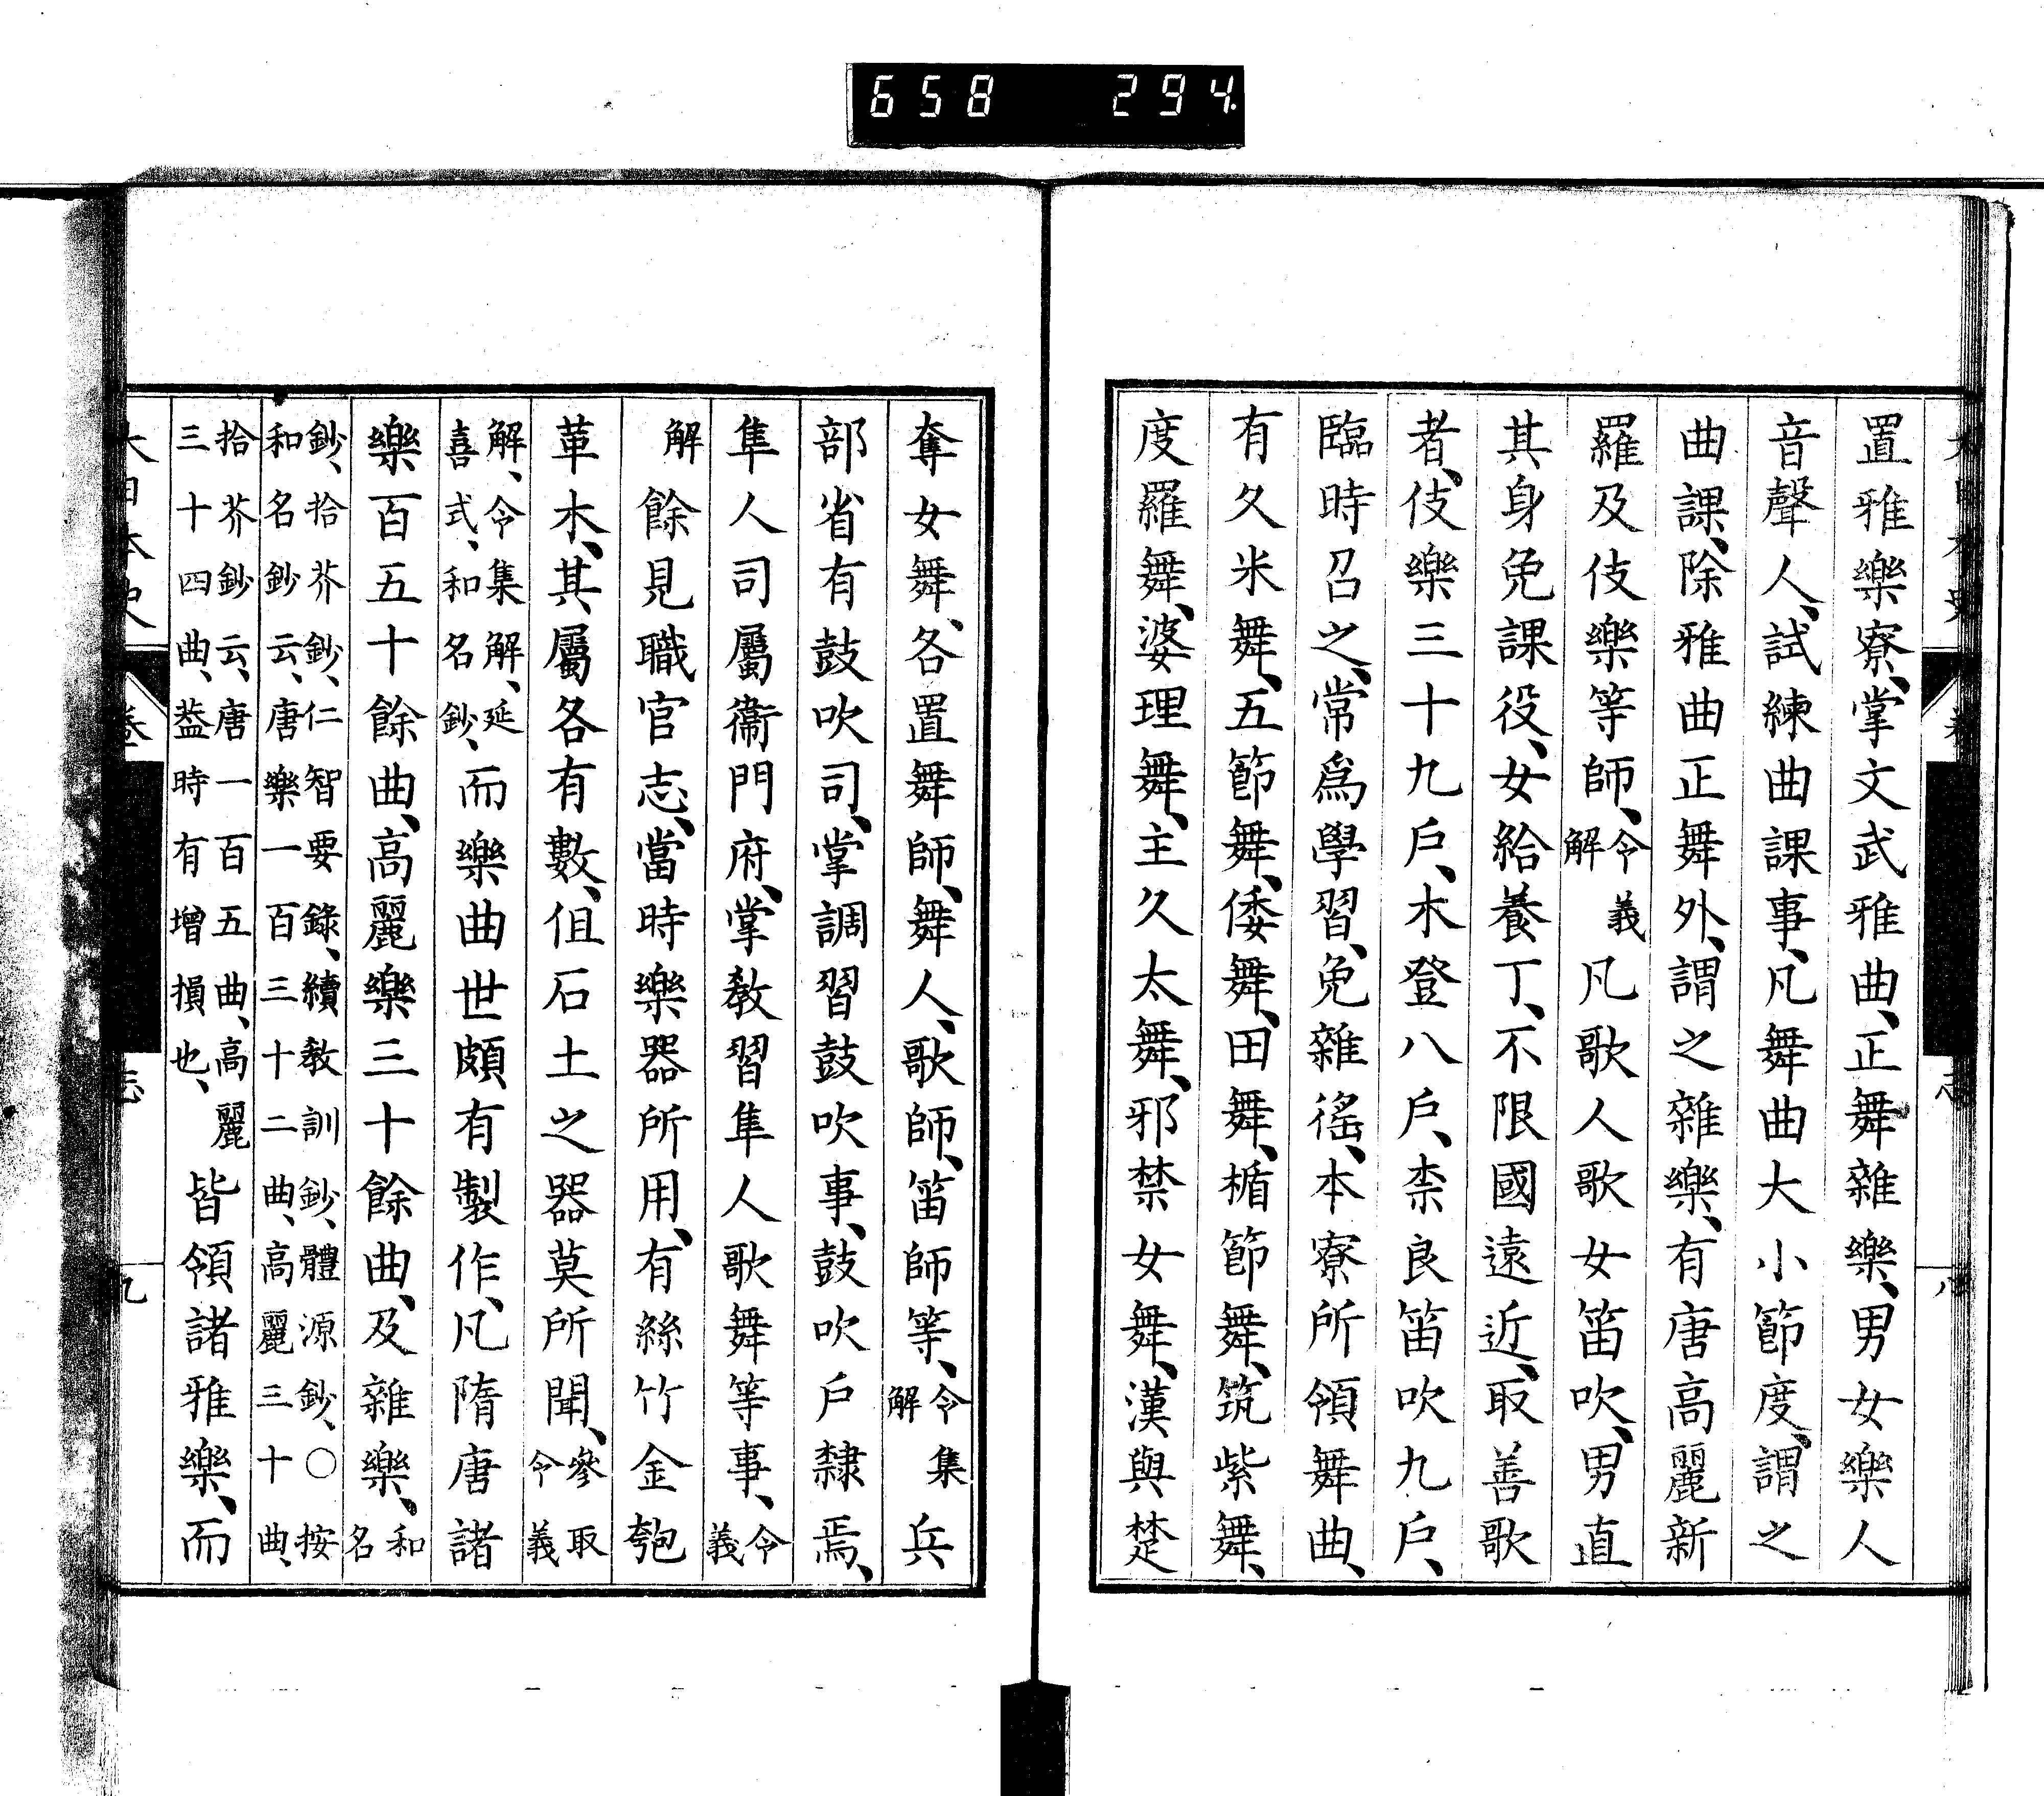 658 294.
置雅樂寮、掌文武雅曲、正舞雜樂、男女樂人
音聲人、試練曲課事、凡舞曲大小節度、謂之
曲課、除雅曲正舞外、謂之雜樂、有唐高麗新
羅及伎樂等師、令義解凡歌人歌女笛吹、男直
其身免課役、女給養丁、不限國遠近、取善歌
者、伎樂三十九戶、木登八戶、柰良笛吹九戶、
臨時召之、常爲學習、免雜徭、本寮所領舞曲、
有久米舞、五節舞、倭舞、田舞、楯節舞、筑紫舞、
度羅舞、婆理舞、主久太舞、邪禁女舞、漢與楚
奪女舞、各置舞師、舞人、歌師、笛師等、令集解兵
部省有鼓吹司、掌調習鼓吹事、鼓吹戶隸焉、
隼人司屬衞門府、掌敎習隼人歌舞等事、令義
解餘見職官志、當時樂器所用、有絲竹金匏
革木、其屬各有數、但石土之器莫所聞、參取令義
解、令集解、延喜式、和名鈔、而樂曲世頗有製作、凡隋唐諸
樂百五十餘曲、高麗樂三十餘曲、及雜樂、和名
鈔、拾芥鈔、仁智要錄、續敎訓鈔、體源鈔、○按
和名鈔云、唐樂一百三十二曲、高麗三十曲、
拾芥鈔云、唐一百五曲、高麗
三十四曲、蓋時有增損也、皆領諸雅樂、而
志
九